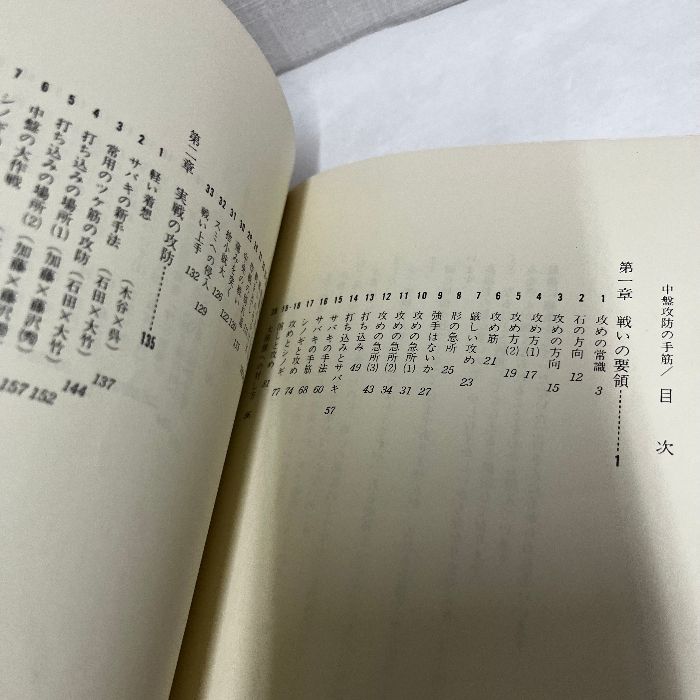 中盤攻防の手筋/目次
第一章 戦いの要領 1
1 攻めの常識 3
2 石の方向 12
3 攻めの方向 15
4 攻め方(1) 17
5 攻め方(2) 19
6 攻め筋 21
7 厳しい攻め 23
8 形の急所 25
9 強手はないか 27
10 攻めの急所(1) 31
11 攻めの急所(2) 34
12 攻めの急所(3) 43
13 打ち込み 49
14 打ち込みとサバキ 57
15 サバキの手法 60
16 サバキの手筋 68
17 シノギと攻め 74
18 攻めとシノギ 77
31 痛みを突く
32 捨小就大 126
33 スミへの侵入 129
戦い上手 132
第二章 実戦の攻防 135
1 軽い着想 (木谷×呉) 137
2 サバキの新手法 (石田×大竹) 144
3 常用のツケ筋の攻防 (石田×大竹) 152
4 打ち込みの場所(1) (加藤×藤沢(秀) 157
5 打ち込みの場所(2) (加藤×藤沢
6 中盤の大作戦
7 シノギの